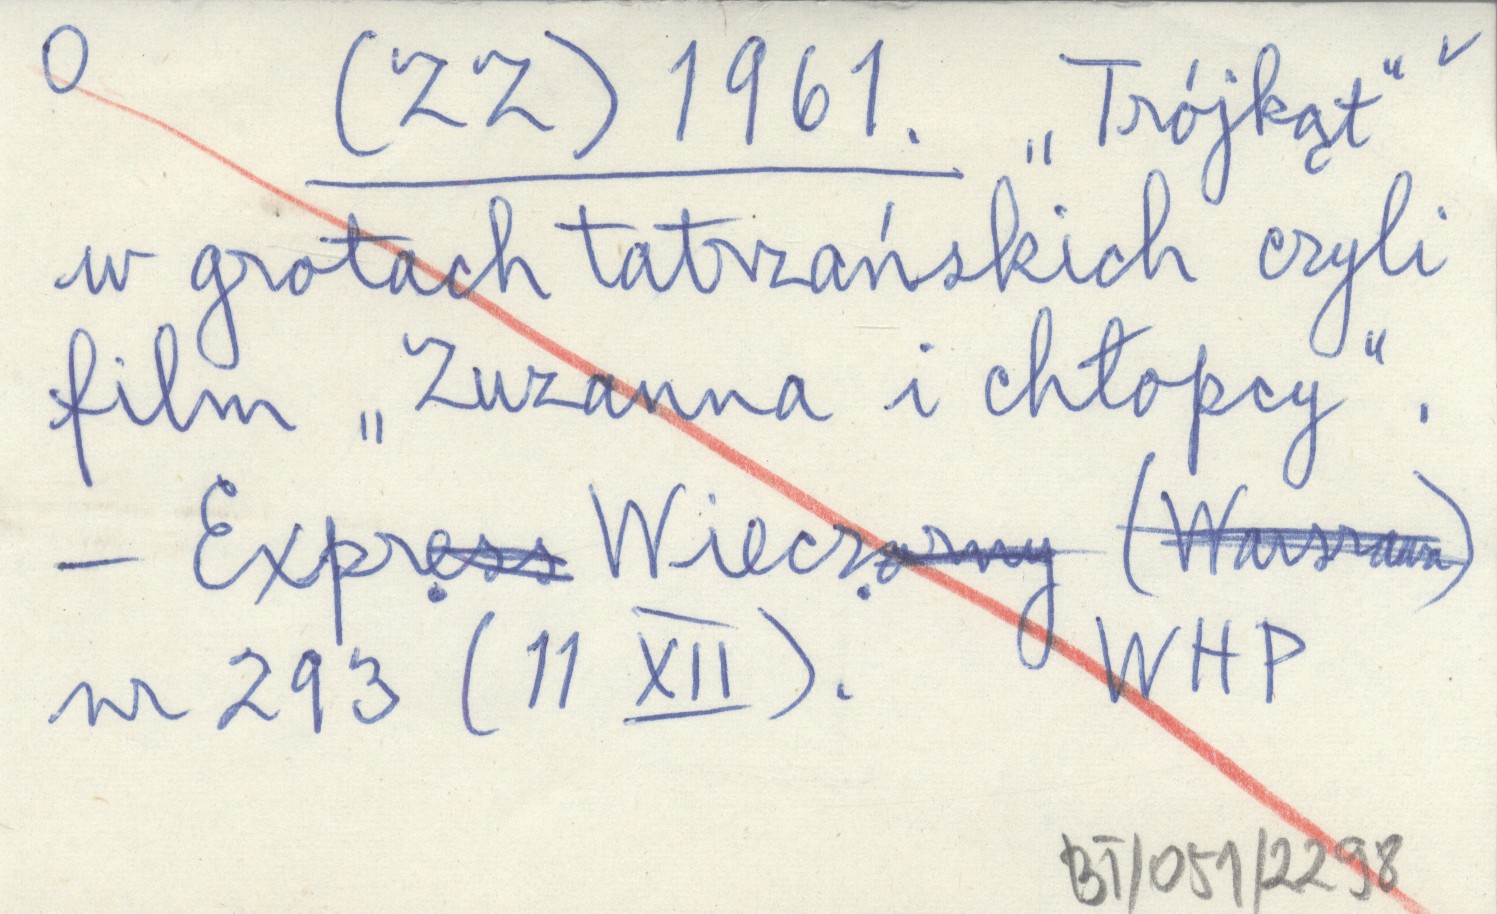 O (ZZ) 1961. „Trójkąt" ✓
w grotach tatrzańskich czyli
film „Zuzanna i chłopcy".
– Express Wieczorny (Warszawa)
nr 293 (11 XII). WHP
BT/051/2298